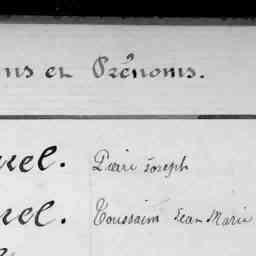 ms et Prénoms.
uel. Pierre Joseph
uel. Toussaint Jean Marie